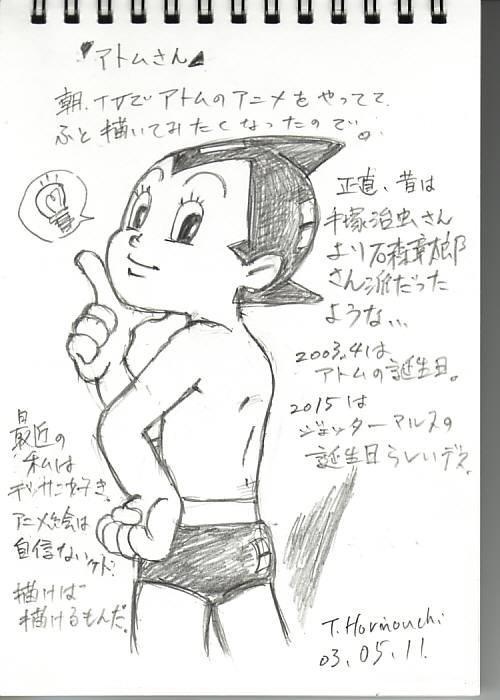 アトムさん
朝、TVでアトムのアニメをやってて
ふと描いてみたくなったので。
正直、昔は
手塚治虫さん
より石森章太郎
さん派だった
ような...
2003.4は
アトムの誕生日。
2015は
ジェッターマルスの
誕生日らしいデス。
最近の
私は
デッサン好き。
アニメ絵は
自信ないケド、
描けば
描けるもんだ。
T. Horinouchi
03.05.11.